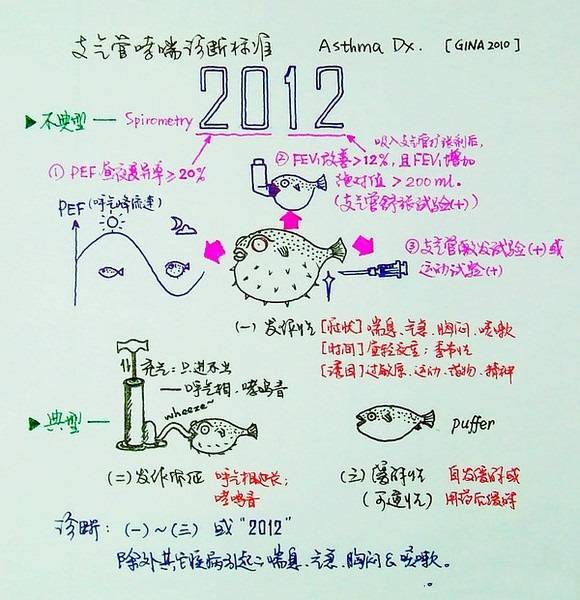 支气管哮喘诊断标准 Asthma Dx. [GINA 2010]
2012
▶不典型— Spirometry
吸入支气管扩张剂后,
① PEF 昼夜变异率≥20%
② FEV₁改善>12%, 且FEV₁增加
绝对值>200ml.
(支气管舒张试验(+))
PEF(呼气峰流速)
③ 支气管激发试验(+)或
运动试验(+)
(一) 发作性 [症状] 喘息、气急、胸闷、咳嗽
[时间] 昼轻夜重;季节性
[诱因] 过敏原、运动、药物、精神
充气:只进不出
—呼气相、哮鸣音
wheeze~
▶典型—
puffer
(二) 发作体征 呼气相延长;
哮鸣音
(三) 缓解性 自发缓解或
(可逆性) 用药后缓解
诊断: (一)~(三) 或“2012”
除外其它疾病引起之喘息、气急、胸闷&咳嗽。